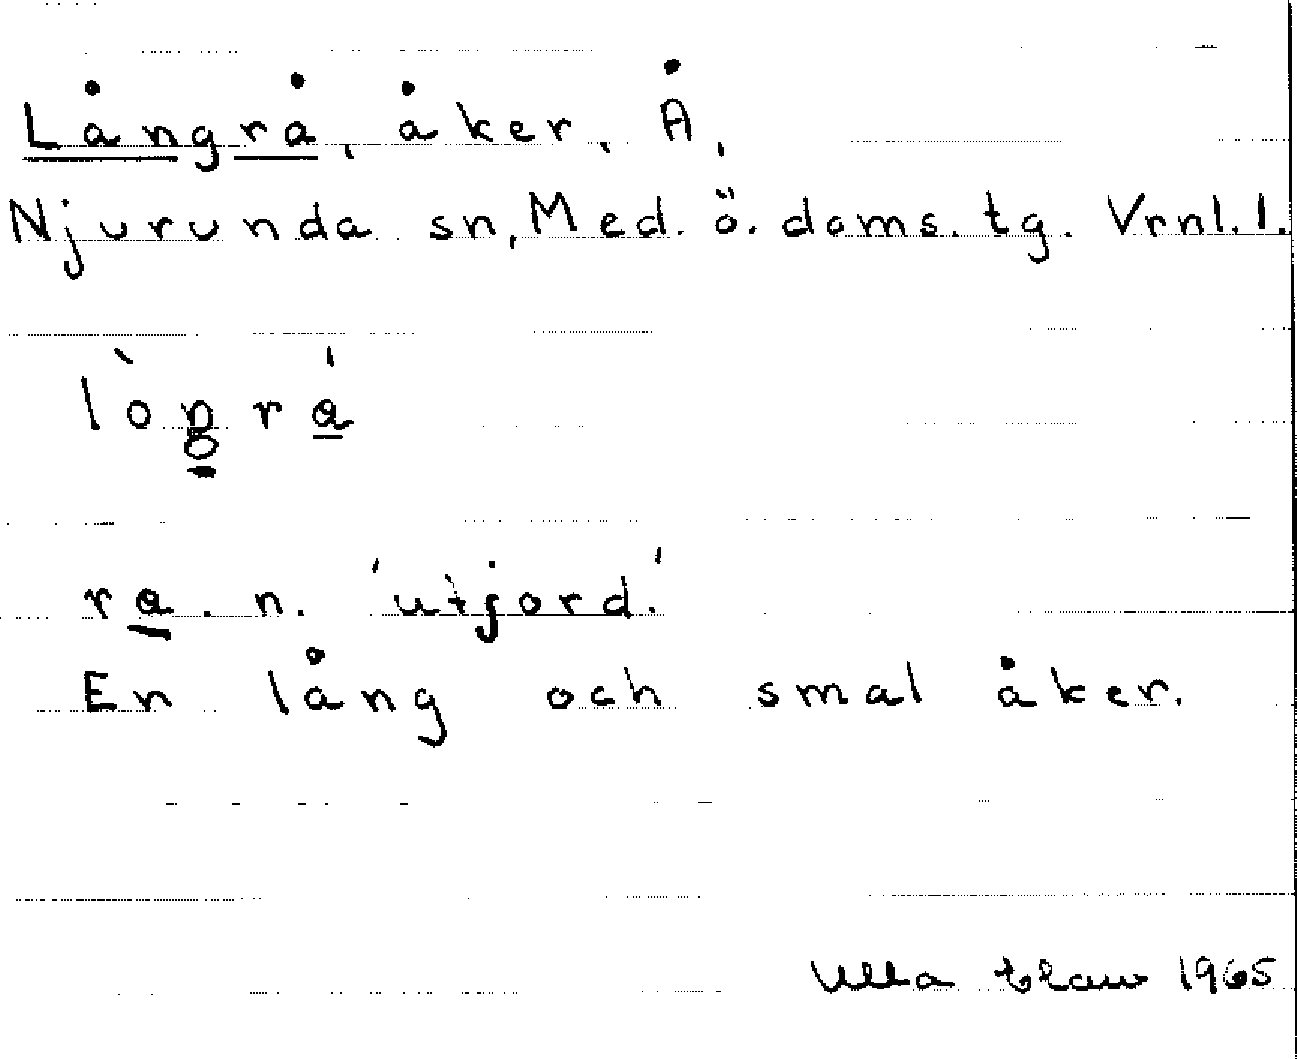 Långrå, åker, Å,
Njurunda sn, Med. ö. doms. tg. Vrnl. 1.
lòŋrá
ra. n. 'utjord.'
En lång och smal åker.
Ulla 1965